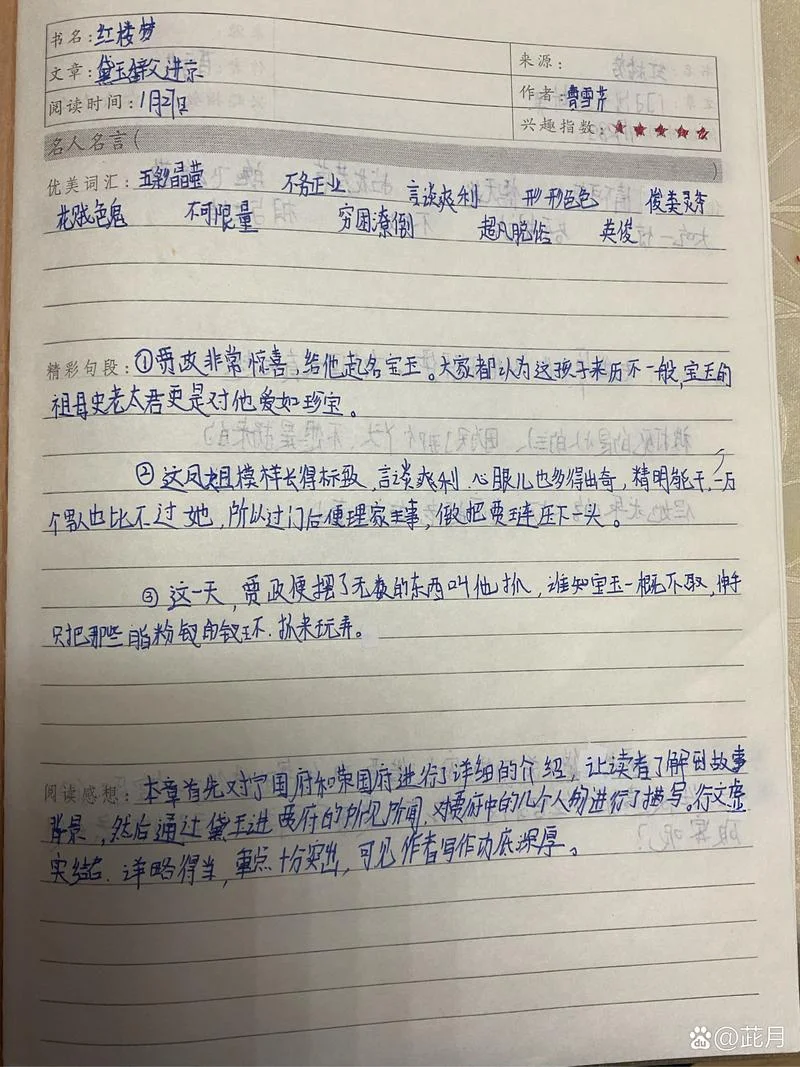 书名：红楼梦
来源：
文章：黛玉辞父进京
作者：曹雪芹
阅读时间：1月27日
兴趣指数：★★★★★
名人名言（ ）
优美词汇：五彩晶莹 不务正业 言谈爽利 形形色色 俊美灵秀
花贱色鬼 不可限量 穷困潦倒 超凡脱俗 英俊
精彩句段：①贾政非常惊喜，给他起名宝玉。大家都认为这孩子来历不一般，宝玉的
祖母史老太君更是对他爱如珍宝。
②这凤姐模样长得标致，言谈爽利，心眼儿也多得出奇，精明能干，一万
个男人也比不过她，所以过门后便理家主事，倒把贾琏压下一头。
③这一天，贾政便摆了无数的东西叫他抓，谁知宝玉一概不取，伸手
只把那些脂粉钗环，抓来玩弄。
阅读感想：本章首先对宁国府和荣国府进行了详细的介绍，让读者了解到故事
背景，然后通过黛玉进贾府的所见所闻，对贾府中的几个人物进行了描写。行文虚
实结合，详略得当，重点十分突出，可见作者写作功底深厚。
Bai du @茈月